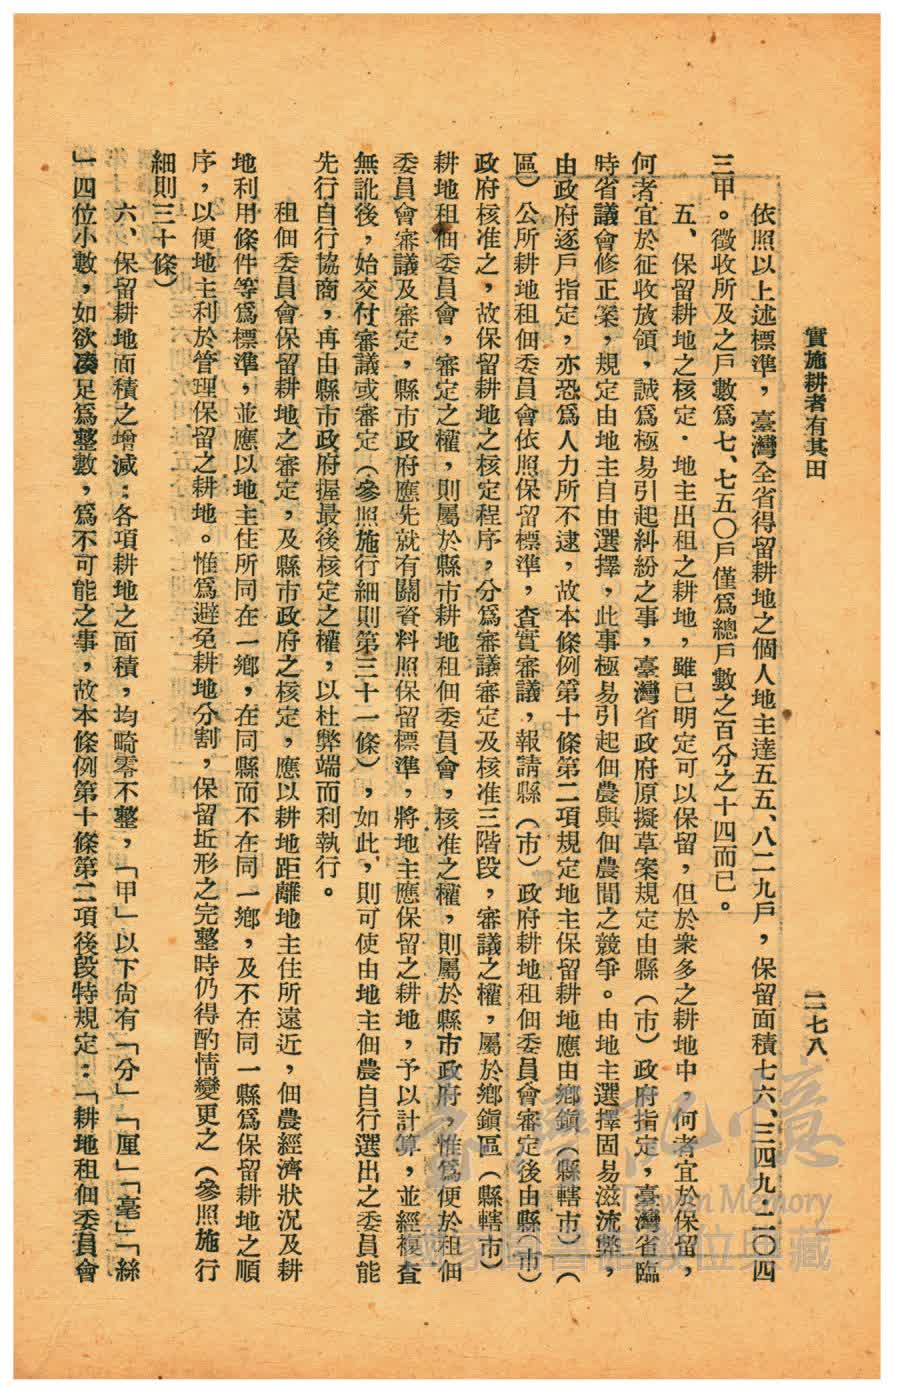 實施耕者有其田
二七八
依照以上述標準，臺灣全省得留耕地之個人地主達五五、八二九戶，保留面積七六、三四九·二〇四
三甲。徵收所及之戶數爲七、七五〇戶僅爲總戶數之百分之十四而已。
五、保留耕地之核定·地主出租之耕地，雖已明定可以保留，但於衆多之耕地中　何者宜於保留，
何者宜於征收放領，誠爲極易引起糾紛之事，臺灣省政府原擬草案規定由縣（市）政府指定，臺灣省臨
時省議會修正案，規定由地主自由選擇，此事極易引起佃農與佃農間之競爭。由地主選擇固易滋流弊，
由政府逐戶指定，亦恐爲人力所不逮，故本條例第十條第二項規定地主保留耕地應由鄉鎮（縣轄市）（
區）公所耕地租佃委員會依照保留標準，查實審議，報請縣（市）政府耕地租佃委員會審定後由縣（市）
政府核准之，故保留耕地之核定程序，分爲審議審定及核准三階段，審議之權，屬於鄉鎮區（縣轄市）
耕地租佃委員會，審定之權，則屬於縣市耕地租佃委員會，核准之權，則屬於縣市政府，惟爲便於租佃
委員會審議及審定，縣市政府應先就有關資料照保留標準，將地主應保留之耕地，予以計算，並經複查
無訛後，始交付審議或審定（參照施行細則第三十一條），如此，則可使由地主佃農自行選出之委員能
先行自行協商，再由縣市政府握最後核定之權，以杜弊端而利執行。
租佃委員會保留耕地之審定，及縣市政府之核定，應以耕地距離地主住所遠近，佃農經濟狀況及耕
地利用條件等爲標準，並應以地主住所同在一鄉，在同縣而不在同一鄉，及不在同一縣爲保留耕地之順
序，以便地主利於管理保留之耕地。惟爲避免耕地分割，保留坵形之完整時仍得酌情變更之（參照施行
細則三十條）
六、保留耕地面積之增減：各項耕地之面積，均畸零不整，「甲」以下尙有「分」「厘」「毫」「絲
」四位小數，如欲湊足爲整數，爲不可能之事，故本條例第十條第二項後段特規定：「耕地租佃委員會
臺灣記憶
Taiwan Memory
國家圖書館數位典藏